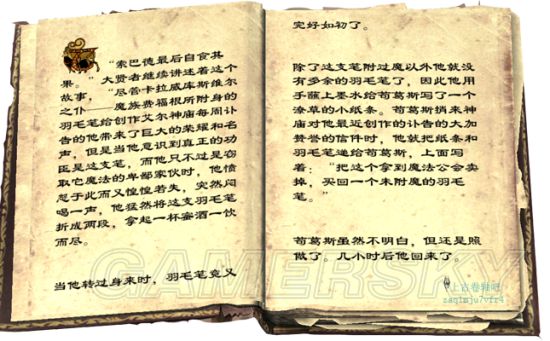 "索巴德最后自食其
果。"大贤者继续讲述着这个
故事,"尽管卡拉威库斯维尔
之仆——魔族费福根所附身的
羽毛笔给创作艾尔神庙每周讣
告的他带来了巨大的荣耀和名
声,但是当他意识到真正的功
臣是这支笔,而他只不过是窃
取它魔法的卑鄙家伙时,他愤
怒于此而又惶惶若失,突然闷
喝一声,他猛然将这支羽毛笔
折成两段,拿起一杯蜜酒一饮
而尽。
当他转过身来时,羽毛笔竟又
完好如初了。
除了这支笔附过魔以外他就没
有多余的羽毛笔了,因此他用
手蘸上墨水给苟葛斯写了一个
潦草的小纸条。苟葛斯捎来神
庙对他最近创作的讣告的大加
赞誉的信件时,他就把纸条和
羽毛笔递给苟葛斯,上面写
着:"把这个拿到魔法公会卖
掉,买回一个未附魔的羽毛
笔。"
苟葛斯虽然不明白,但还是照
做了。几小时后他回来了
GAMERSKY
上古卷轴吧
zaq1mju7vfr4